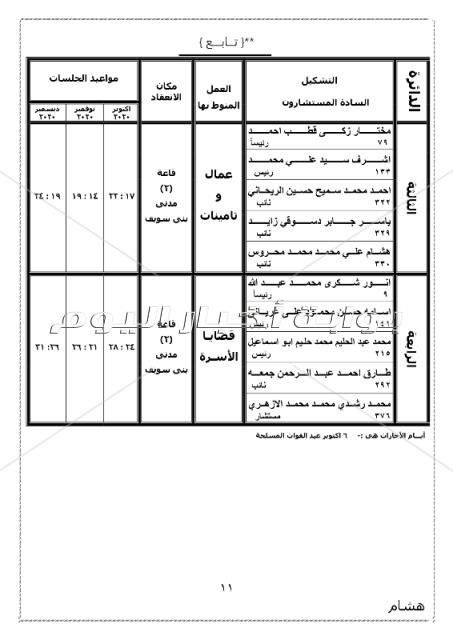 **{ تـابـع }
الدائرة
التشكيل
السادة المستشارون
العمل
المنوط بها
مكان
الانعقاد
مواعيد الجلسات
اكتوبر
٢٠٢٠
نوفمبر
٢٠٢٠
ديسمبر
٢٠٢٠
الثالثة
مختار زكى قطب احمد
٧٩ رئيسا
اشرف سيد على محمد
١٣٣ رئيس
احمد محمد سميح حسين الريحانى
٣٢٢ نائب
ياسر جابر دسوقي زايد
٣٢٩ نائب
هشام على محمد محمد محروس
٣٣٠ نائب
عمال
و
تامينات
قاعة
(٢)
مدنى
بنى سويف
١٧ : ٢٢
١٤ : ١٩
١٩ : ٢٤
الرابعة
انور شكرى محمد عبد الله
٩ رئيسا
اسامة حسن محمد على
١٤١ رئيس
محمد عبد الحليم محمد حليم ابو اسماعيل
٢١٥ رئيس
طارق احمد عبد الرحمن جمعه
٢٩٢ نائب
محمد رشدي محمد محمد الازهري
٣٧٦ مستشار
قضايا
الأسرة
قاعة
(٢)
مدنى
بنى سويف
٢٤ : ٢٨
٢١ : ٢٦
٢٦ : ٣١
بوابة أخبار اليوم
أيام الأجازات هى :- ٦ اكتوبر عيد القوات المسلحة
١١
هشام